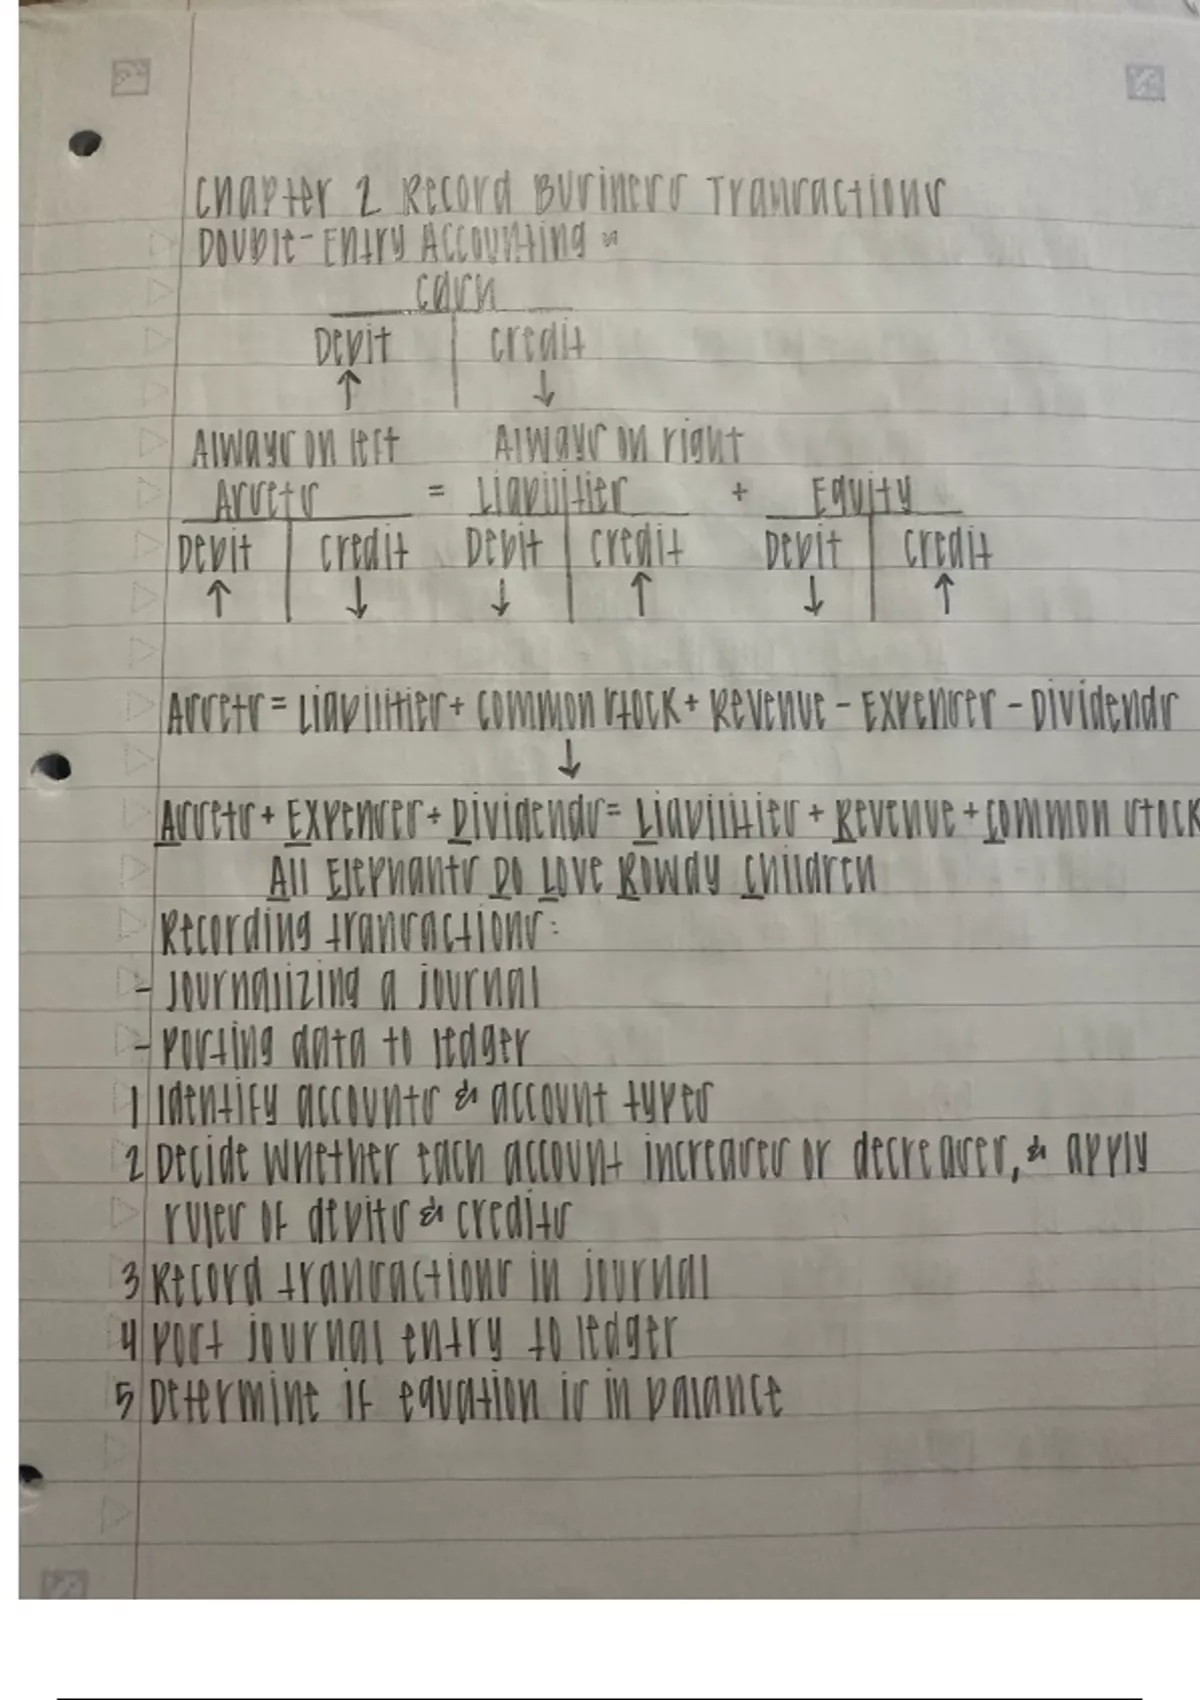 Chapter 2 Record Business Transactions
Double-Entry Accounting
Cash
Debit Credit
↑ ↓
Always on left Always on right
Assets = Liabilities + Equity
Debit Credit Debit Credit Debit Credit
↑ ↓ ↓ ↑ ↓ ↑
Assets = Liabilities + Common Stock + Revenue - Expenses - Dividends
↓
Assets + Expenses + Dividends = Liabilities + Revenue + Common Stock
All Elephants Do Love Rowdy Children
Recording transactions:
- Journalizing a journal
- Posting data to ledger
1 Identify accounts & account types
2 Decide whether each account increases or decreases, & apply
rules of debits & credits
3 Record transactions in journal
4 Post journal entry to ledger
5 Determine if equation is in balance